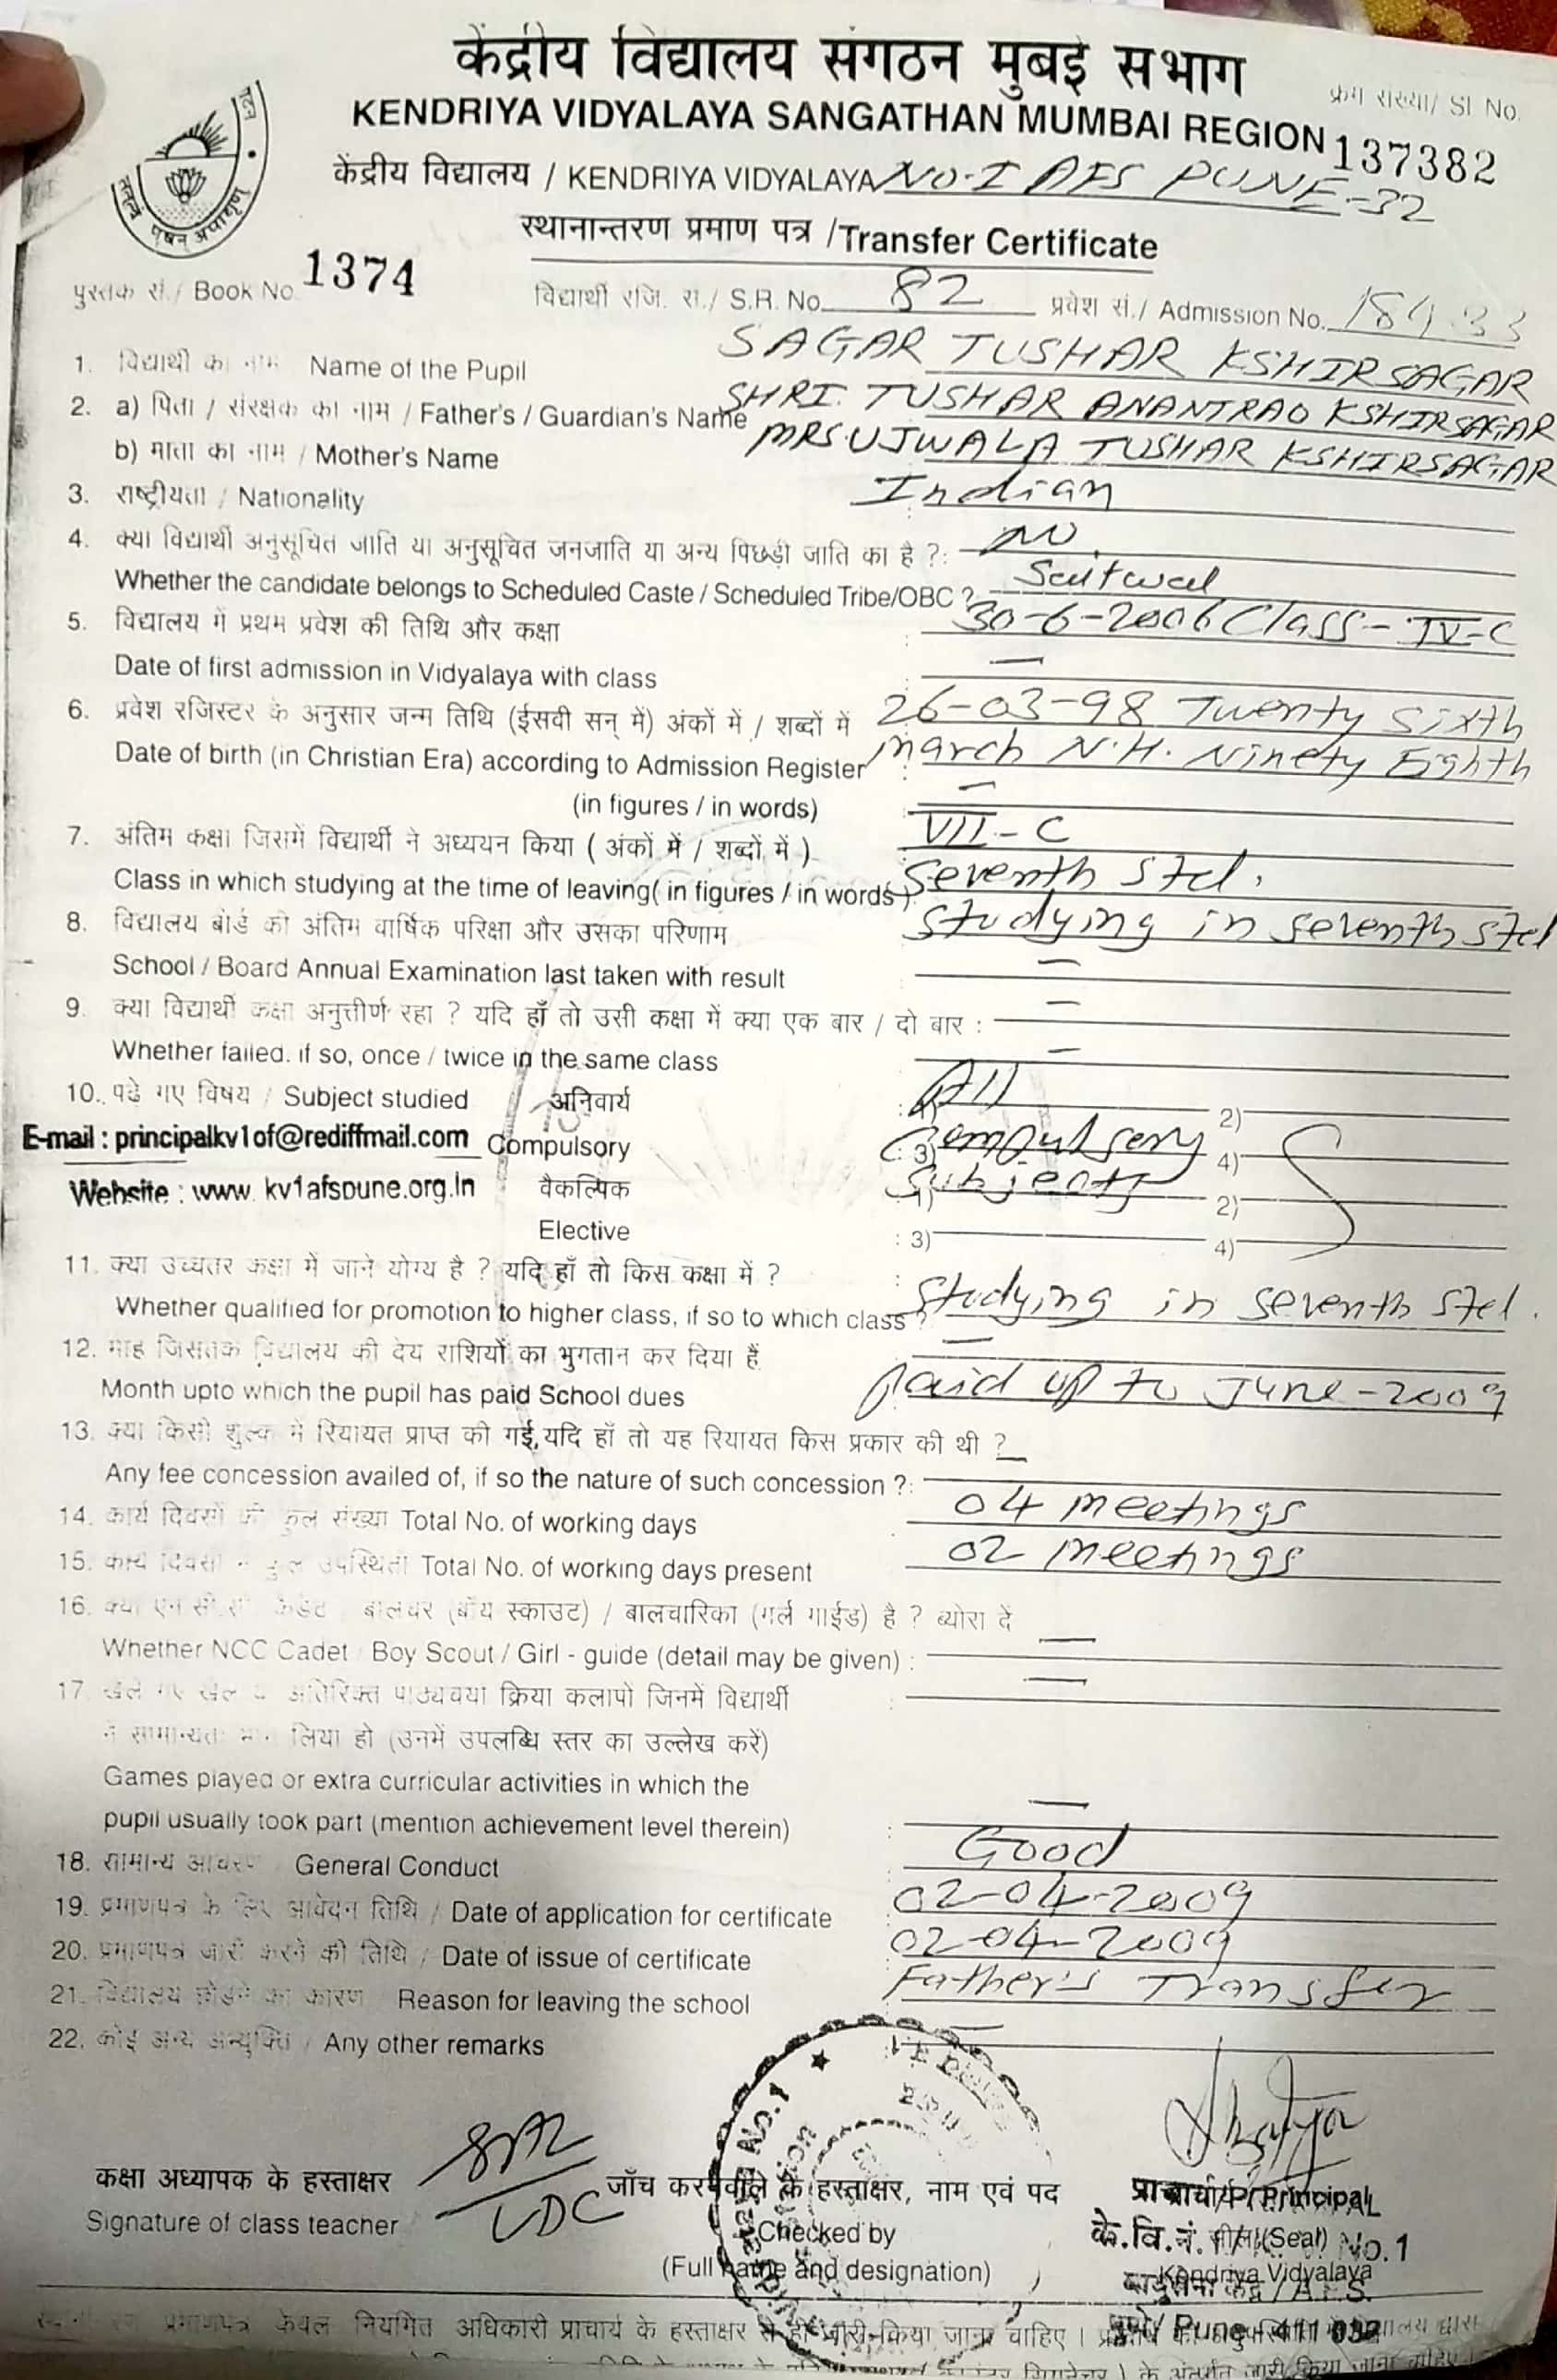 केंद्रीय विद्यालय संगठन मुबई सभाग
क्रम संख्या/ SI No.
KENDRIYA VIDYALAYA SANGATHAN MUMBAI REGION 137382
केंद्रीय विद्यालय / KENDRIYA VIDYALAYA NO-I AFS PUNE-32
स्थानान्तरण प्रमाण पत्र /Transfer Certificate
पुस्तक सं./ Book No. 1374 विद्यार्थी रजि. सं./ S.R. No. 82 प्रवेश सं./ Admission No.
1. विद्यार्थी का नाम Name of the Pupil SAGAR TUSHAR KSHIRSAGAR
2. a) पिता / संरक्षक का नाम / Father's / Guardian's Name SHRI. TUSHAR ANANTRAO KSHIRSAGAR
b) माता का नाम / Mother's Name MRS UJWALA TUSHAR KSHIRSAGAR
3. राष्ट्रीयता / Nationality Indian
4. क्या विद्यार्थी अनुसूचित जाति या अनुसूचित जनजाति या अन्य पिछड़ी जाति का है ?: NO.
Whether the candidate belongs to Scheduled Caste / Scheduled Tribe/OBC ? Saitwal
5. विद्यालय में प्रथम प्रवेश की तिथि और कक्षा 30-6-2006 Class - IV-C
Date of first admission in Vidyalaya with class : —
6. प्रवेश रजिस्टर के अनुसार जन्म तिथि (ईसवी सन् में) अंकों में / शब्दों में 26-03-98 Twenty Sixth
Date of birth (in Christian Era) according to Admission Register march N.H. Ninety Eighth
(in figures / in words) : —
7. अंतिम कक्षा जिसमें विद्यार्थी ने अध्ययन किया ( अंकों में / शब्दों में ) VII - C
Class in which studying at the time of leaving( in figures / in words ) Seventh Std.
8. विद्यालय बोर्ड की अंतिम वार्षिक परिक्षा और उसका परिणाम studying in seventh std
School / Board Annual Examination last taken with result —
9. क्या विद्यार्थी कक्षा अनुत्तीर्ण रहा ? यदि हाँ तो उसी कक्षा में क्या एक बार / दो बार : —
Whether failed. if so, once / twice in the same class —
10. पढे गए विषय / Subject studied अनिवार्य All 2)
E-mail : principalkv1of@rediffmail.com Compulsory : 3) Compulsory 4)
Website : www. kv1afspune.org.In वैकल्पिक 1) Subjects 2)
Elective : 3) 4)
11. क्या उच्चतर कक्षा में जाने योग्य है ? यदि हाँ तो किस कक्षा में ? :
Whether qualified for promotion to higher class, if so to which class ? studying in seventh std.
12. माह जिसतक विद्यालय की देय राशियों का भुगतान कर दिया हैं —
Month upto which the pupil has paid School dues paid up to June-2009
13. क्या किसी शुल्क में रियायत प्राप्त की गई, यदि हाँ तो यह रियायत किस प्रकार की थी ? —
Any fee concession availed of, if so the nature of such concession ?:
14. कार्य दिवसों की कुल संख्या Total No. of working days 04 meetings
15. Total No. of working days present 02 meetings
16. क्या एन.सी.सी. कैडेट बालचर (बॉय स्काउट) / बालचारिका (गर्ल गाईड) है ? ब्योरा दें —
Whether NCC Cadet Boy Scout / Girl - guide (detail may be given) :
17. खेले गए खेल अतिरिक्त पाठ्यचर्या क्रिया कलापों जिनमें विद्यार्थी : —
ने सामान्यतः भाग लिया हो (उनमें उपलब्धि स्तर का उल्लेख करें)
Games played or extra curricular activities in which the
pupil usually took part (mention achievement level therein) : —
18. सामान्य आचरण General Conduct Good
19. प्रमाणपत्र के लिए आवेदन तिथि / Date of application for certificate 02-04-2009
20. प्रमाणपत्र जारी करने की तिथि / Date of issue of certificate 02-04-2009
21. विद्यालय छोडने का कारण Reason for leaving the school Father's Transfer
22. कोई अन्य अभ्युक्ति / Any other remarks —
कक्षा अध्यापक के हस्ताक्षर जाँच करनेवाले के हस्ताक्षर, नाम एवं पद प्राचार्य/ Principal
LDC
Signature of class teacher Checked by के.वि.नं. (Seal) No.1
(Full name and designation) Kendriya Vidyalaya
वायुसेना केंद्र / A.F.S.
पुणे/ Pune - 411 032
प्रमाणपत्र केवल नियमित अधिकारी प्राचार्य के हस्ताक्षर से ही जारी किया जाना चाहिए ।